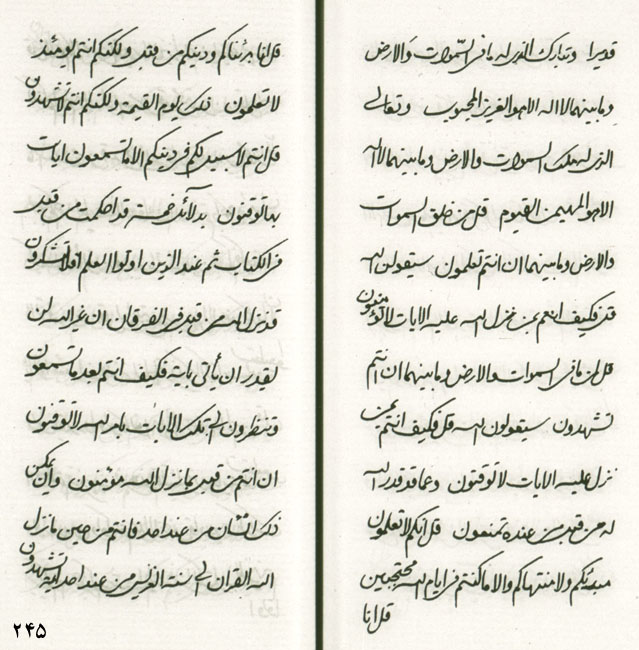 قديرا وتبارك الذى له ما فى السموات والارض
وما بينهما لا اله الا هو العزيز المحبوب وتعالى
الذى له ملك السموات والارض وما بينهما لا اله
الا هو المهيمن القيوم قل من خلق السموات
والارض وما بينهما ان انتم تعلمون سيقولن الله
قل فكيف انتم بمن نزل الله عليه الايات لا تؤمنون
قل لمن ما فى السموات والارض وما بينهما ان انتم
تشهدون سيقولون الله قل فكيف انتم بمن
نزل عليه الايات لا توقنون وعما قد قدر الله
له من قبل من عنده تمنعون قل انكم لا تعلمون
مبدئكم ولا منتهاكم والا ما كنتم فى ايام الله محتجبين
قل انا
قل انا برئناكم ودينكم من قبل ولكنكم انتم يومئذ
لا تعلمون ذلك يوم القيمة ولكنكم انتم لا تشهدون
قل انتم لا سبيل لكم فى دينكم الا ما تسمعون ايات
بها توقنون بدلائل خمسة قد احكمت من قبل
فى الكتاب ثم عند الذين اولوا العلم افلا تشكرون
قد نزل الله من قبل فى الفرقان ان غير الله لن
يقدر ان يأتى باية فكيف انتم بعد ما تسمعون
وتنظرون الى تلك الايات بامر الله لا توقنون
ان انتم من قبل بما نزل الله مؤمنون وان يمكن
ذلك الشان من عند احد فانتم من حين ما نزل
الله القران الى سنة الغرس من عند احد اية تشهدون
٢٤٥